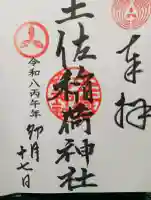 奉拝
土佐稲荷神社
令和八丙午年
卯月
十七日